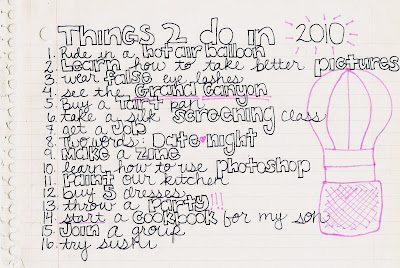 Things 2 do in 2010
1. Ride in a hot air balloon
2. Learn how to take better pictures
3. wear false eye lashes
4. see the Grand Canyon
5. Buy a tart pan
6. take a silk screening class
7. get a job
8. Two words: Date night
9. Make a zine
10. learn how to use photoshop
11. Paint our kitchen
12. buy 5 dresses
13. throw a party!!!
14. start a cookbook for my son
15. Join a group
16. try sushi